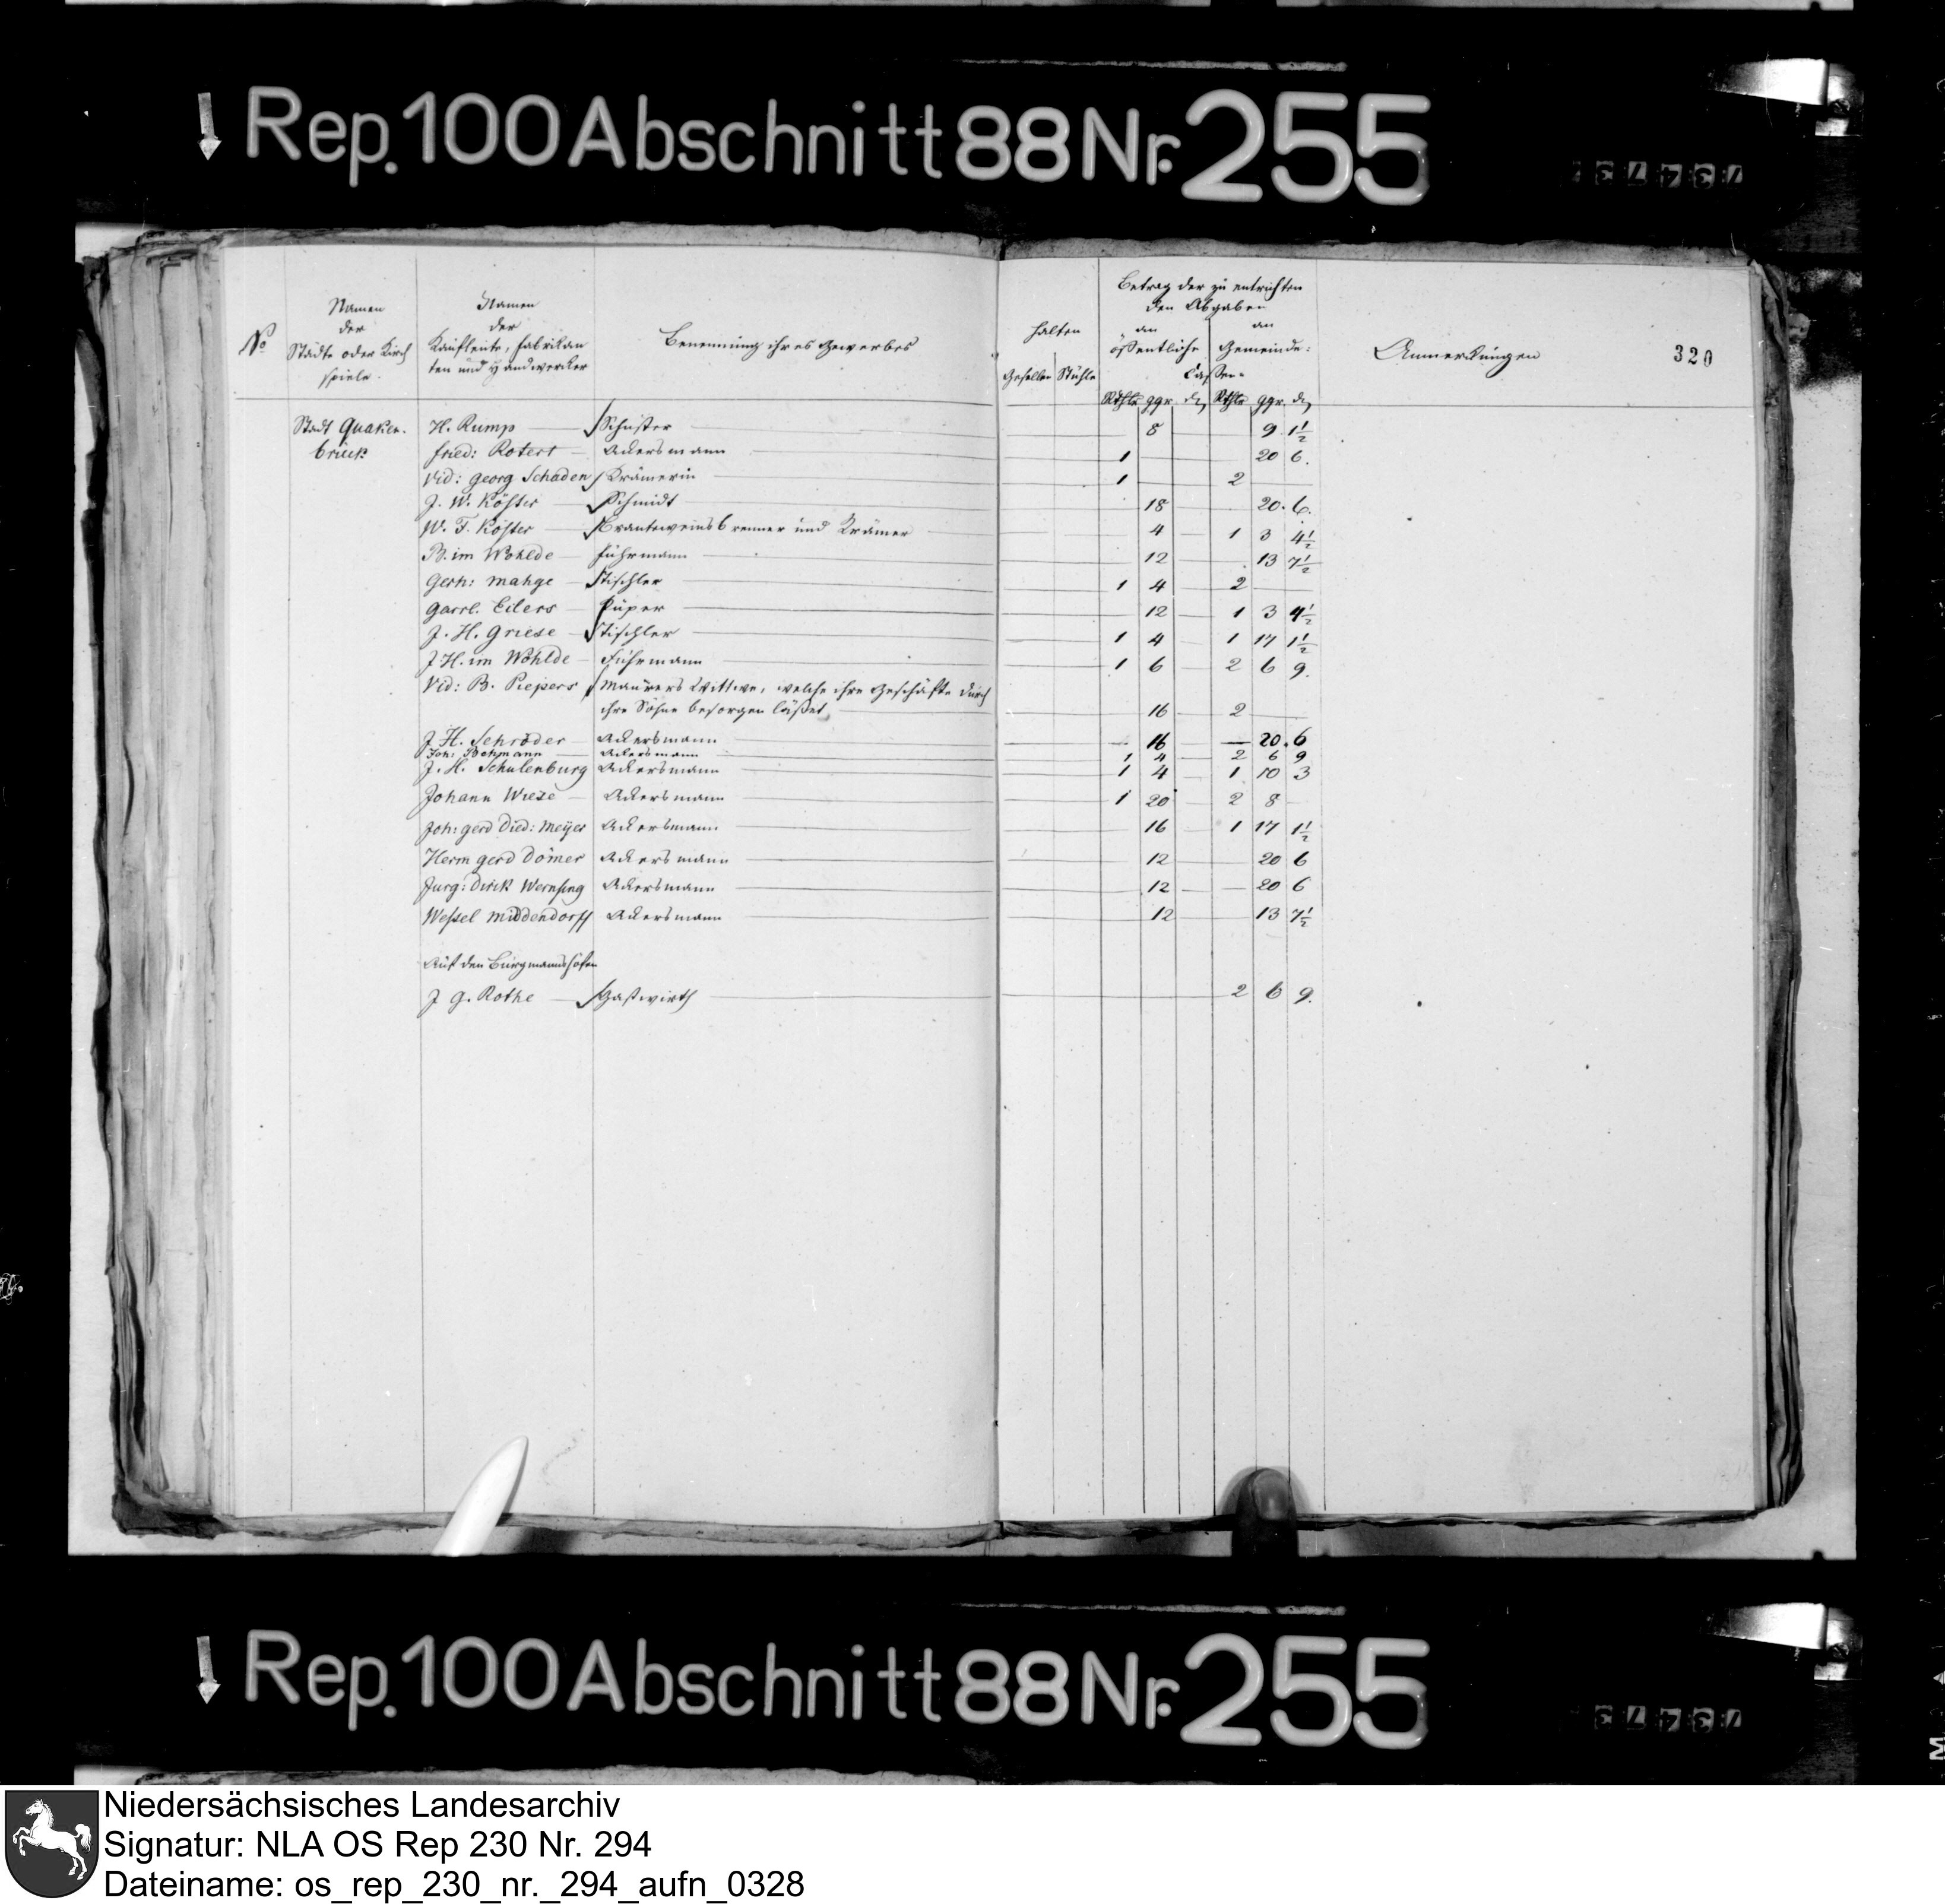 Rep. 100 Abschnitt 88 Nr. 255
320
No
Namen der Städte oder Kirchspiele.
Namen der Kaufleute, Fabrikanten und Handwerker
Benennung ihres Gewerbes
halten
Gesellen Stühle
Betrag der zu entrichtenden Abgaben
an öffentliche an Gemeinde-
Cassen
Rthlr ggr. d Rthlr ggr. d
Anmerkungen
Stadt Quaken-
brück
H. Rump — Schuster 8 9 1½
Fried: Rotert — Ackersmann 1 20 6.
Vid: Georg Schaden Krämerin 1 2
J. W. Köster — Schmidt 18 20. 6.
W. F. Köster — Branteweinsbrenner und Krämer 4 1 3 4½
B. im Wohlde — Fuhrmann 12 13 7½
Gerh: Mahge — Tischler 1 4 2
Garrl. Eilers — Küper 12 1 3 4½
J. H. Griese — Tischler 1 4 1 17 1½
J H. im Wohlde — Fuhrmann 1 6 2 6 9.
Vid: B. Piepers Maurers Wittwe, welche ihre Geschäfte durch
ihre Söhne besorgen läßet 16 2
J H. Schröder — Ackersmann 16 — 20. 6
Joh: Bohmann — Ackersmann 1 4 2 6 9
J. H. Schulenburg Ackersmann 1 4 1 10 3
Johann Wiese — Ackersmann 1 20 2 8
Joh: Gerd Died: Meÿer Ackersmann 16 1 17 1½
Herm Gerd Dömer Ackersmann 12 20 6
Jurg: Dirik Wernsing Ackersmann 12 20 6
Wessel Middendorff Ackersmann 12 13 7½
Auf den Burgmannshöfen
J G. Rothe — Gastwirth 2 6 9.
Rep. 100 Abschnitt 88 Nr. 255
Niedersächsisches Landesarchiv
Signatur: NLA OS Rep 230 Nr. 294
Dateiname: os_rep_230_nr._294_aufn_0328